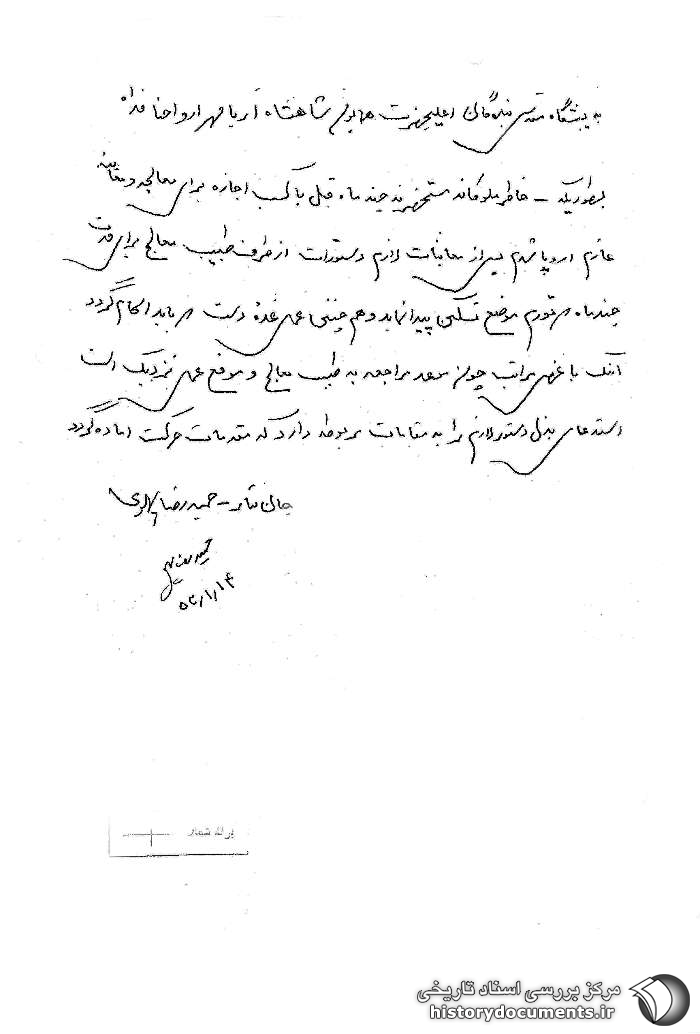 به پیشگاه مقدس بندگان اعلیحضرت همایون شاهنشاه آریامهر ارواحنا فداه
بطوریکه - خاطر ملوکانه مستحضرند چند ماه قبل با کسب اجازه برای معالجه و معاینه
عازم اروپا شدم پس از معاینات لازم دستورات از طرف طبیب معالج برای مدت
چند ماه تورم موضع تسکین پیدا نماید و هم چنین عمل غده دست باید انجام گردد
اینک با عرض مراتب چون موعد مراجعه به طبیب معالج و موقع عمل نزدیک است
استدعای بذل دستور لازم را به مقامات مربوطه دارد که مقدمات حرکت اماده گردد
جان نثار - حمیدرضا پهلوی
۵۲/۱/۱۴
مرکز بررسی اسناد تاریخی
historydocuments.ir